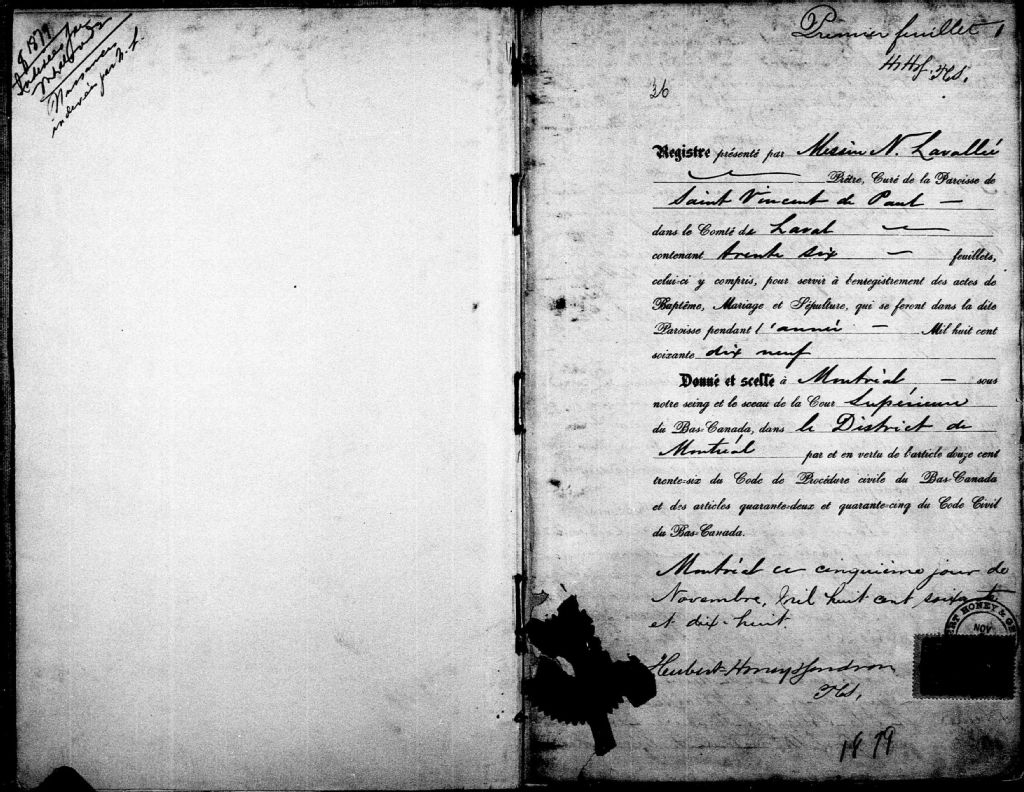 1879
indexées par
Naissances
indexées par
Premier feuillet 1
HH&G. P.S.
36
Registre présenté par Messire N. Lavallée
Prêtre, Curé de la Paroisse de
Saint Vincent de Paul —
dans le Comté de Laval —
contenant trente six — feuillets,
celui-ci y compris, pour servir à l'enregistrement des actes de
Baptême, Mariage et Sépulture, qui se feront dans la dite
Paroisse pendant l'année — Mil huit cent
soixante dix neuf
Donné et scellé à Montréal — sous
notre seing et le sceau de la Cour Supérieure
du Bas-Canada, dans le District de
Montréal par et en vertu de l'article douze cent
trente-six du Code de Procédure civile du Bas-Canada
et des articles quarante-deux et quarante-cinq du Code Civil
du Bas-Canada.
Montréal ce cinquième jour de
Novembre, Mil huit cent soixante
et dix-huit.
HONEY & GE
NOV
Hubert Honey & Gendron
P.S.
1879